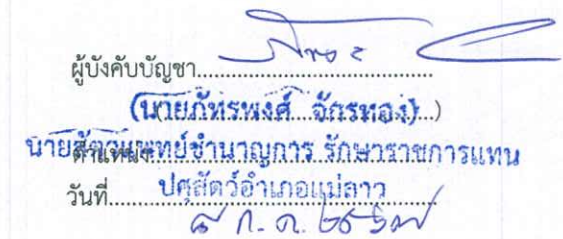 ผู้บังคับบัญชา
(นายภัทรพงศ์ จักรทอง)
นายสัตวแพทย์ชำนาญการ รักษาราชการแทน
ตำแหน่ง
ปศุสัตว์อำเภอแม่ลาว
วันที่
ก.ค. ๒๕๖๗